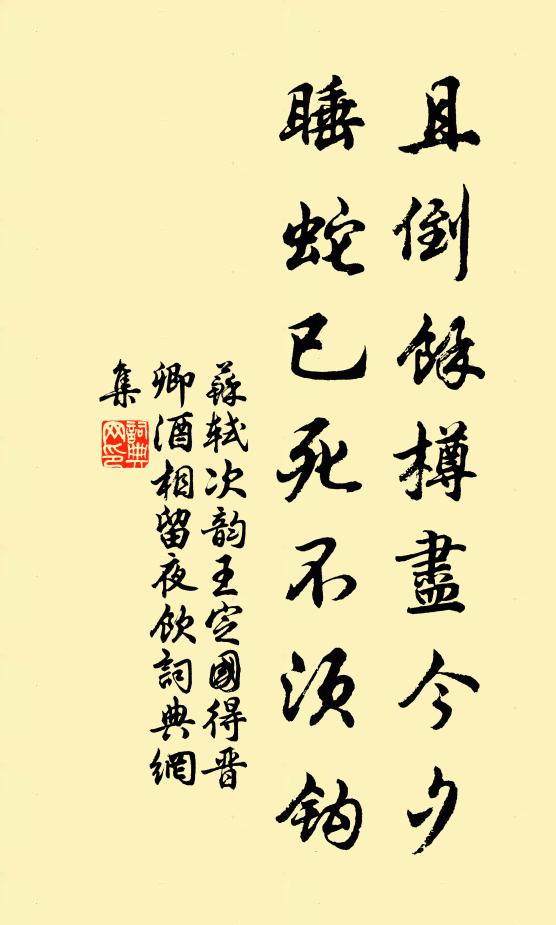 且倒餘樽盡今夕
睡蛇已死不須鈎
蘇軾次韵王定國得晋
卿酒相留夜飲詞典網
集
詞典
网印